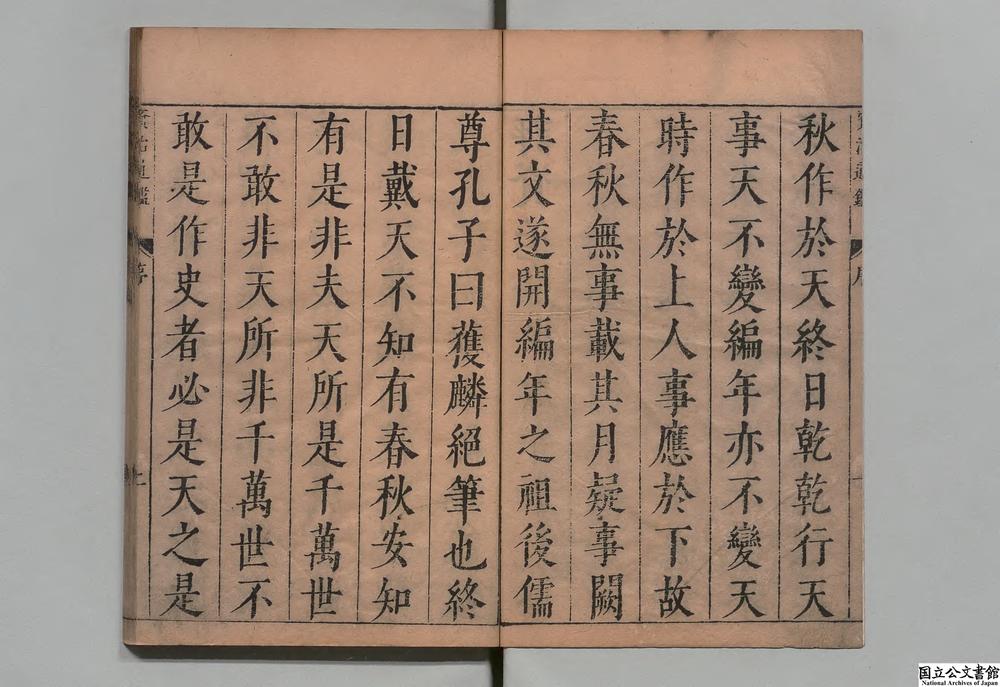 秋作於天終日乾乾行天
事天不變編年亦不變天
時作於上人事應於下故
春秋無事載其月疑事闕
其文遂開編年之祖後儒
尊孔子曰獲麟絕筆也終
日戴天不知有春秋安知
有是非夫天所是千萬世
不敢非天所非千萬世不
敢是作史者必是天之是
国立公文書館
National Archives of Japan